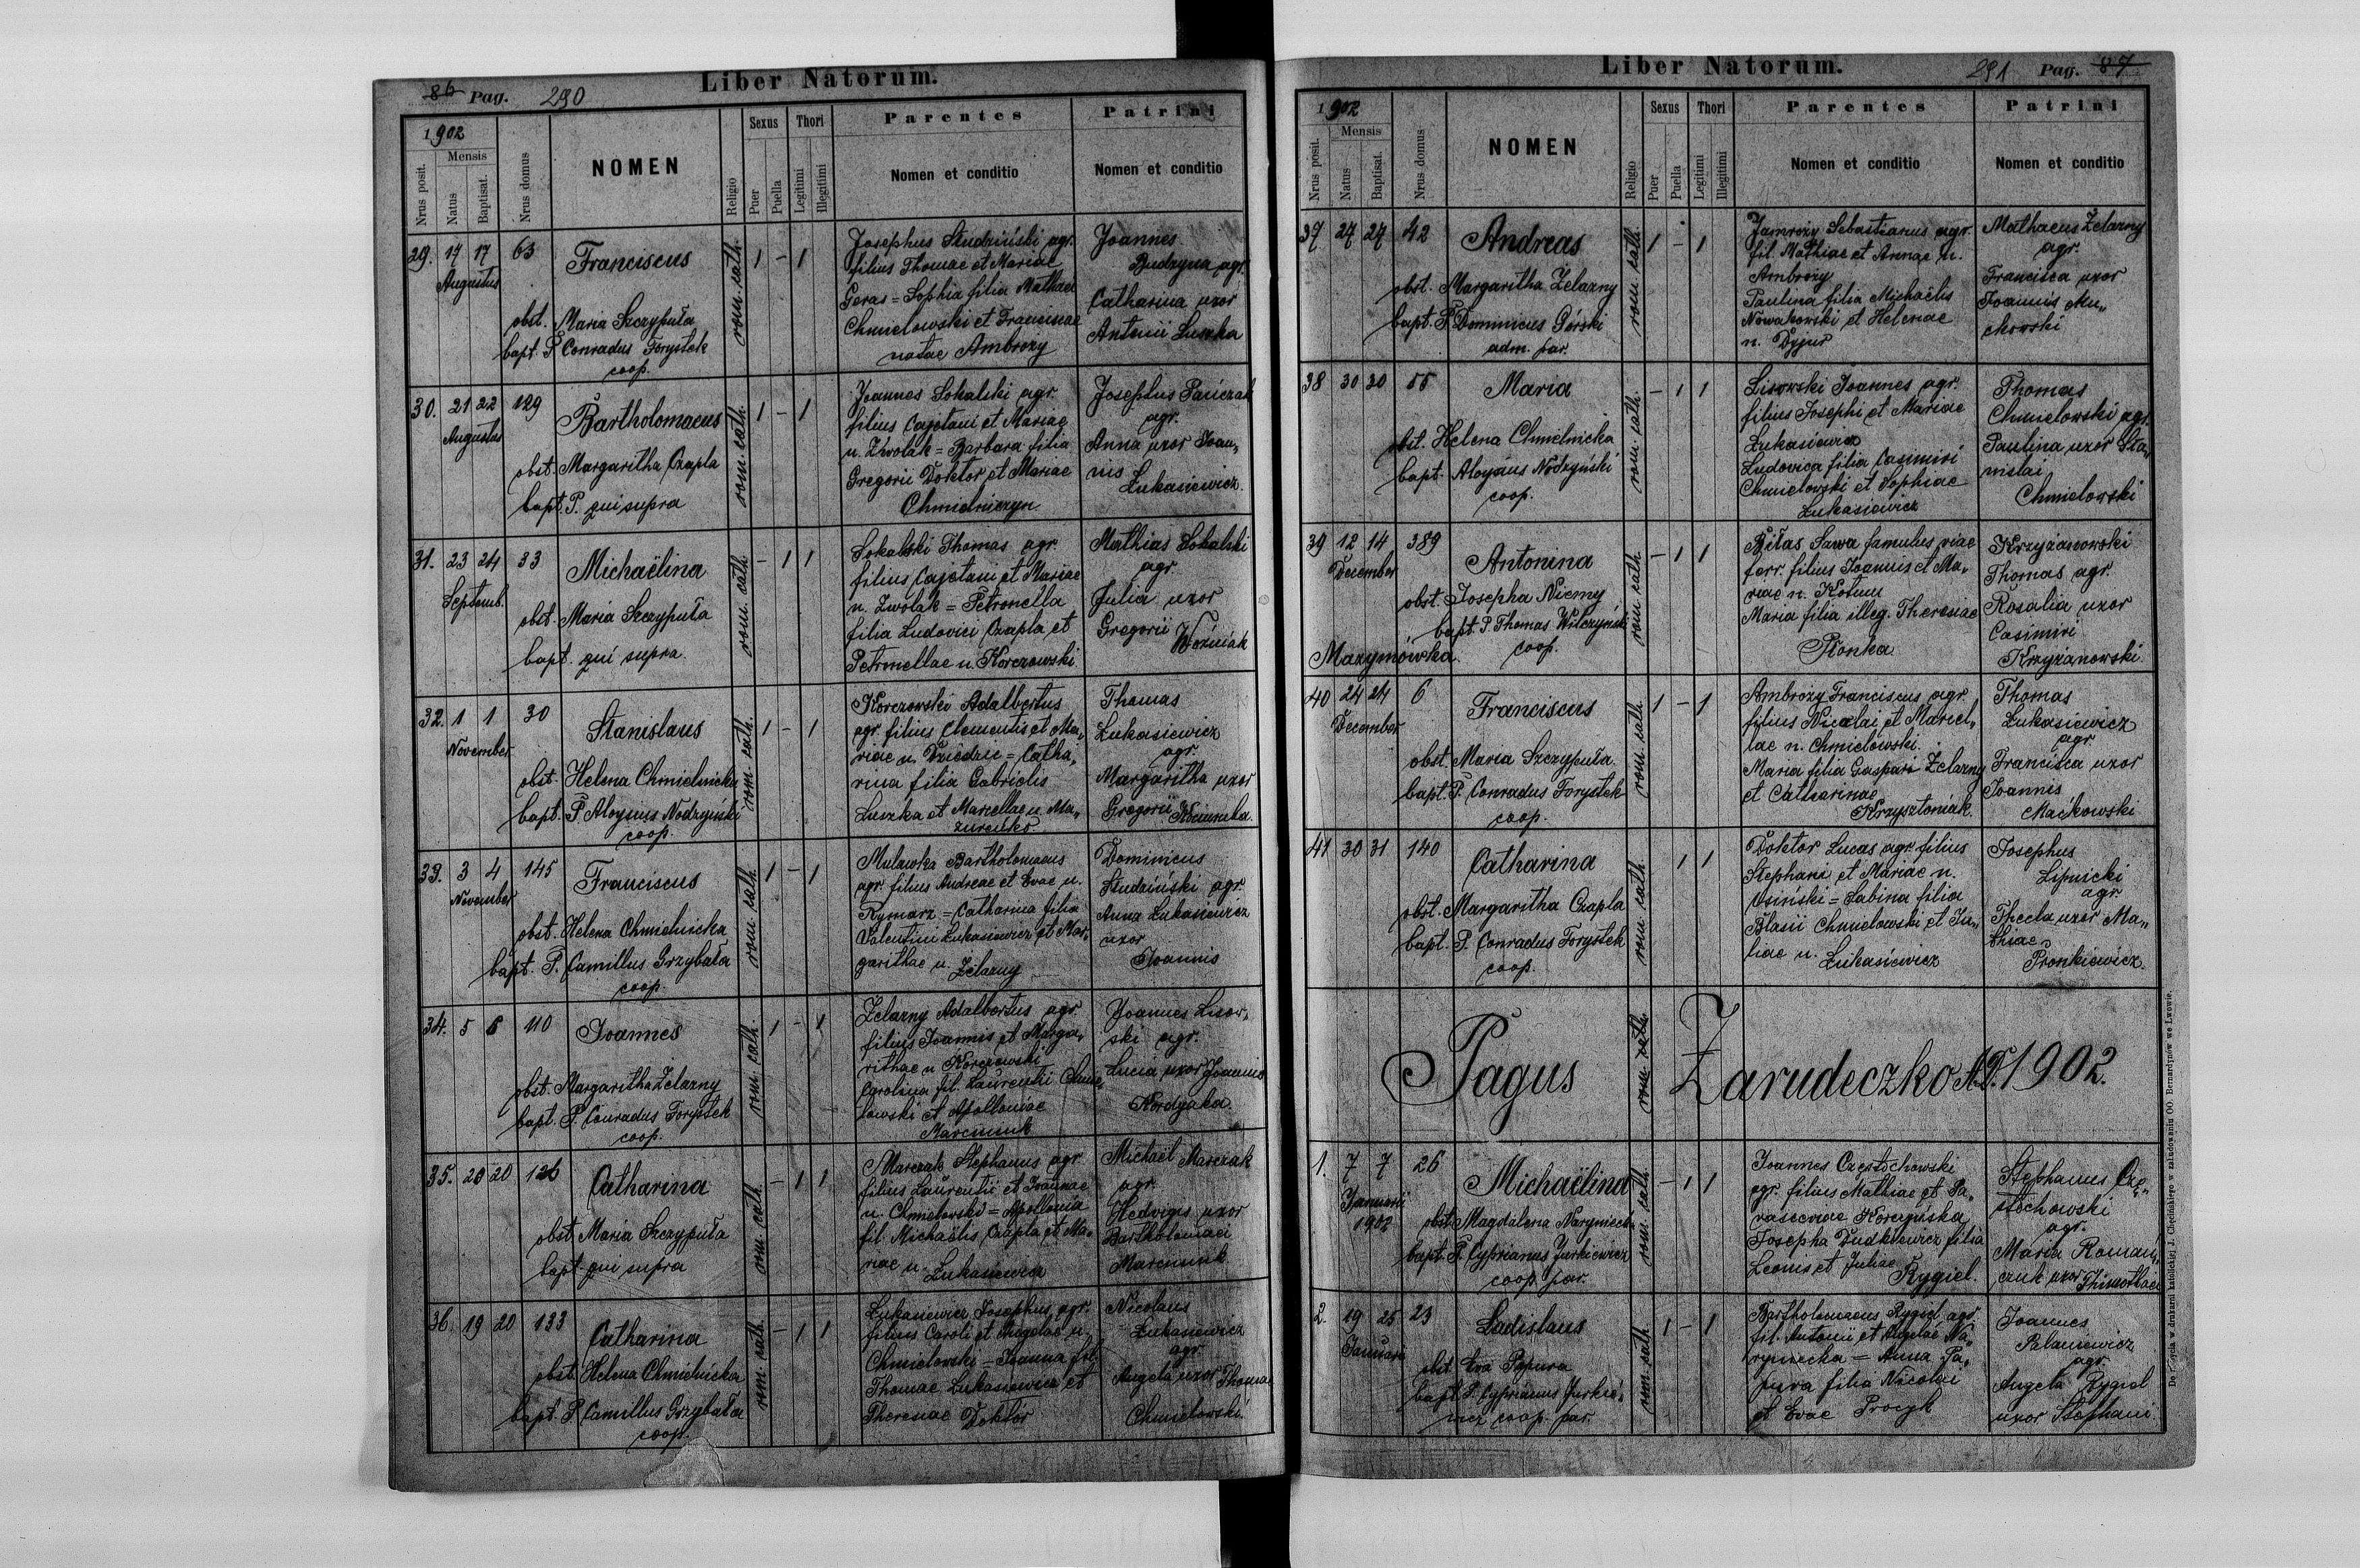 86 Pag. 290
Liber Natorum.
1902
Nrus posit.
Mensis
Natus
Baptisat.
Nrus domus
NOMEN
Religio
Sexus
Puer
Puella
Thori
Legitimi
Illegitimi
Parentes
Nomen et conditio
Patrini
Nomen et conditio
29. 14 17 63
Augustus
Franciscus
obst. Maria Szczypuła
bapt. P. Conradus Forystek
coop.
rom. cath.
1 - 1
Josephus Studziński agr.
filius Thomae et Mariae
Geras = Sophia filia Mathaei
Chmielowski et Franciscae
natae Ambroży
Joannes
Budzyna agr.
Catharina uxor
Antonii Luszka
30. 21 22 129
Augustus
Bartholomaeus
obst. Margaritha Czapla
bapt. P. qui supra
rom. cath.
1 - 1
Joannes Sokalski agr.
filius Cajetani et Mariae
n. Zwolak = Barbara filia
Gregorii Doktor et Mariae
Chmielniczyn
Josephus Pańczak
agr.
Anna uxor Joan„
nis
Łukasiewicz.
31. 23 24 33
Septemb.
Michaëlina
obst. Maria Szczypuła
bapt. qui supra
rom. cath.
- 1 1
Sokalski Thomas agr.
filius Cajetani et Mariae
n. Zwolak = Petronella
filia Ludovici Czapla et
Petronellae n. Korczowski
Mathias Sokalski
agr.
Julia uxor
Gregorii
Woźniak
32. 1 1 30
November
Stanislaus
obst. Helena Chmielnicka
bapt. P. Aloysius Nodzyński
coop.
rom. cath.
1 - 1
Korczowski Adalbertus
agr. filius Clementis et Ma„
riae n. Dziedzic = Catha„
rina filia Gabrielis
Luszka et Marcellae n. Ma„
zureńko
Thomas
Łukasiewicz
agr.
Margaritha uxor
Gregorii
33. 3 4 145
November
Franciscus
obst. Helena Chmielnicka
bapt. P. Camillus Grzybała
coop.
rom. cath.
1 - 1
Mulawka Bartholomaeus
agr. filius Andreae et Evae n.
Rymarz = Catharina filia
Valentini Łukasiewicz et Mar„
garithae n. Żelazny
Dominicus
Studziński agr.
Anna Łukasiewicz
uxor
Joannis
34. 5 6 110
Joannes
obst. Margaritha Żelazny
bapt. P. Conradus Forystek
coop.
rom. cath.
1 - 1
Żelazny Adalbertus agr.
filius Joannis et Marga„
rithae n. Korczowski
Carolina fil. Laurentii Chmie„
lowski et Apolloniae
Marciniuk
Joannes Lisow„
ski agr.
Lucia uxor Joannis
Kordyaka.
35. 20 20 126
Catharina
obst. Maria Szczypuła
bapt. qui supra
rom. cath.
- 1 1
Marczak Stephanus agr.
filius Laurentii et Joannae
n. Chmielowski = Apollonia
fil. Michaëlis Czapla et Ma„
riae n. Łukasiewicz
Michaël Marczak
agr.
Hedvigis uxor
Bartholomaei
Marciniuk
36. 19 20 133
Catharina
obst. Helena Chmielnicka
bapt. P. Camillus Grzybała
coop.
rom. cath.
- 1 1
Łukasiewicz Josephus agr.
filius Caroli et Angelae n.
Chmielowski = Joanna fil.
Thomae Łukasiewicz et
Theresiae Doktór
Nicolaus
Łukasiewicz
agr.
Angela uxor Thomae
Chmielowski
Liber Natorum.
291 Pag. 87
1902
Nrus posit.
Mensis
Natus
Baptisat.
Nrus domus
NOMEN
Religio
Sexus
Puer
Puella
Thori
Legitimi
Illegitimi
Parentes
Nomen et conditio
Patrini
Nomen et conditio
37 27 27 42
Andreas
obst. Margaritha Żelazny
bapt. P. Dominicus Górski
adm. par.
rom. cath.
1 - 1
Jamroży Sebastianus agr.
fil. Mathiae et Annae n.
Ambroży
Paulina filia Michaëlis
Nowakowski et Helenae
n. Dyjur
Mathaeus Żelazny
agr.
Francisca uxor
Joannis Mu„
chowski
38 30 30 55
Maria
obst. Helena Chmielnicka
bapt. Aloysius Nodzyński
coop.
rom. cath.
- 1 1
Lisowski Joannes agr.
filius Josephi et Mariae
Łukasiewicz
Ludovica filia Casimiri
Chmielowski et Sophiae
Łukasiewicz
Thomas
Chmielowski agr.
Paulina uxor Sta„
nislai
Chmielowski
39 12 14 389
December
Mazymówka.
Antonina
obst. Josepha Niemy
bapt. P. Thomas Wilczyński
coop.
rom. cath.
- 1 1
Biłas Sawa famulus viae
ferr. filius Joannis et Ma„
riae n. Kotun
Maria filia illeg. Theresiae
Płonka
Krzyżanowski
Thomas agr.
Rosalia uxor
Casimiri
Krzyżanowski
40 24 24 6
December
Franciscus
obst. Maria Szczypuła
bapt. P. Conradus Forystek
coop.
rom. cath.
1 - 1
Ambroży Franciscus agr.
filius Nicolai et Mariel„
lae n. Chmielowski.
Maria filia Gaspari Żelazny
et Catharinae
Krzysztoniak
Thomas
Łukasiewicz
agr.
Francisca uxor
Joannis
Maćkowski
41 30 31 140
Catharina
obst. Margaritha Czapla
bapt. P. Conradus Forystek
coop.
rom. cath.
1 1
Doktor Lucas agr. filius
Stephani et Mariae n.
Usiński = Sabina filia
Blasii Chmielowski et Ju„
liae n. Łukasiewicz
Josephus
Lipnicki
agr.
Thecla uxor Ma„
thiae
Pronkiewicz.
Pagus Zarudeczko A.D. 1902.
rom. cath.
1. 7 7 26
Januarii
1902
Michaëlina
obst. Magdalena Naryniecka
bapt. P. Cyprianus Jurkiewicz
coop. par.
rom. cath.
- 1 1
Joannes Częstochowski
agr. filius Mathiae et Pa„
rasceviae Korczyńska
Josepha Dudkiewicz filia
Leonis et Juliae
Rygiel.
Stephanus Czę„
stochowski
agr.
Maria Romań„
czuk uxor Thimothaei
2. 19 25 23
Januarii
Ladislaus
obst. Eva Papura
bapt. P. Cyprianus Jurkie„
wicz coop. par.
rom. cath.
1 - 1
Bartholomaeus Rygiel agr.
fil. Antonii et Angelae Na„
ryniecka = Anna Pa„
pura filia Nicolai
et Evae Procyk
Joannes
Palaniewicz
agr.
Angela Rygiel
uxor Stephani
Do nabycia w drukarni katolickiej J. Chęcińskiego w zabudowaniu OO. Bernardynów we Lwowie.